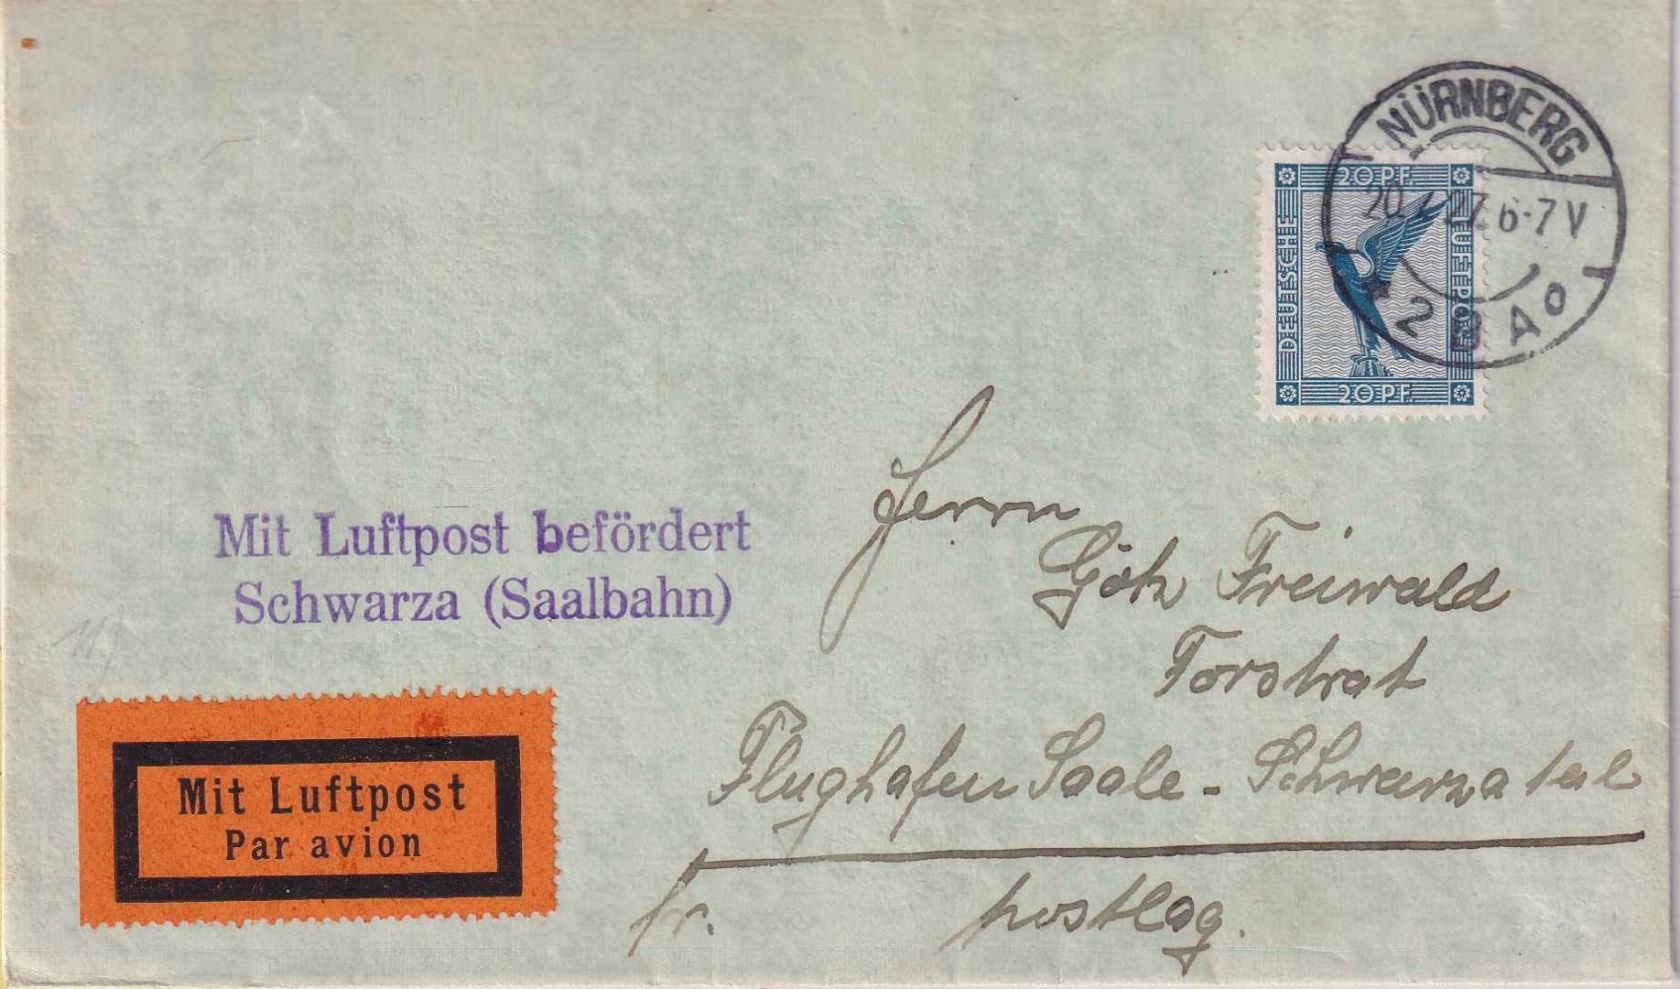 NÜRNBERG
20.7.27.6-7V
* 2 B A o
20 PF
DEUTSCHE LUFTPOST
20 PF
Mit Luftpost befördert
Schwarza (Saalbahn)
Herrn
Götz Freiwald
Forstrat
Flughafen Saale-Schwarzatal
fr. postlag.
Mit Luftpost
Par avion